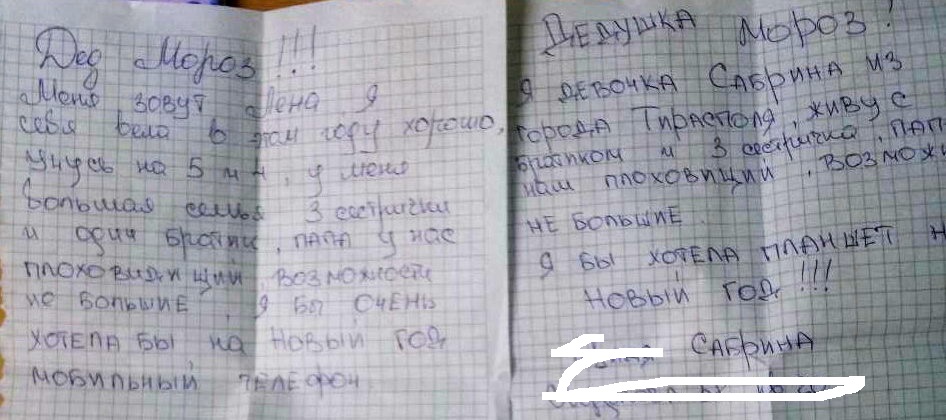 Дед Мороз!!!
Меня зовут Лена я
себя вела в этом году хорошо,
учусь на 5 и 4, у меня
большая семья 3 сестрички
и один братик, папа у нас
плоховидящий, возможности
не большие, я бы очень
хотела бы на Новый год
мобильный телефон
Дедушка Мороз!
Я девочка Сабрина из
города Тирасполя, живу с
братиком и 3 сестрички, пап
наш плоховищий, возможн
не большие.
Я бы хотела планшет н
Новый год!!!
Сабрина